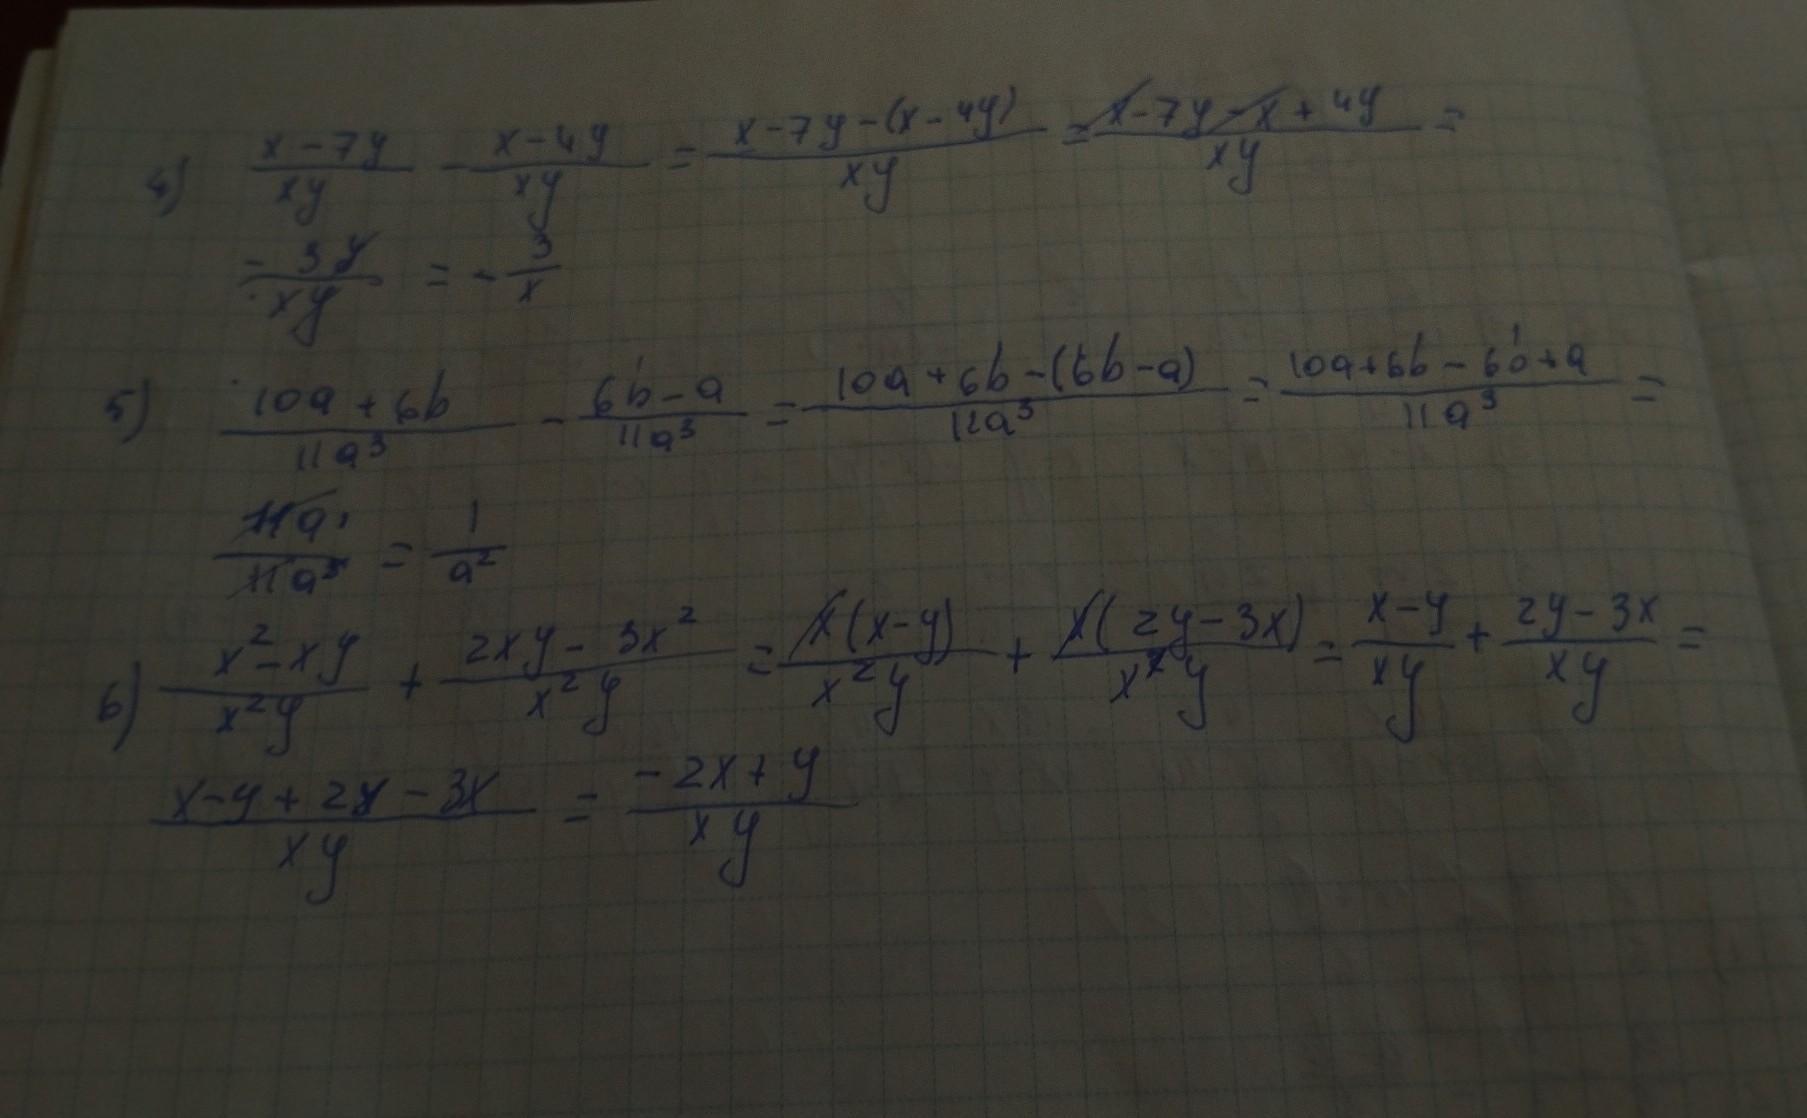 4) \frac{x-7y}{xy} - \frac{x-4y}{xy} = \frac{x-7y-(x-4y)}{xy} = \frac{x-7y-x+4y}{xy} =
\frac{-3y}{xy} = -\frac{3}{x}
5) \frac{10a+6b}{11a^3} - \frac{6b-a}{11a^3} = \frac{10a+6b-(6b-a)}{11a^3} = \frac{10a+6b-6b+a}{11a^3} =
\frac{11a}{11a^3} = \frac{1}{a^2}
6) \frac{x^2-xy}{x^2y} + \frac{2xy-3x^2}{x^2y} = \frac{x(x-y)}{x^2y} + \frac{x(2y-3x)}{x^2y} = \frac{x-y}{xy} + \frac{2y-3x}{xy} =
\frac{x-y+2y-3x}{xy} = \frac{-2x+y}{xy}